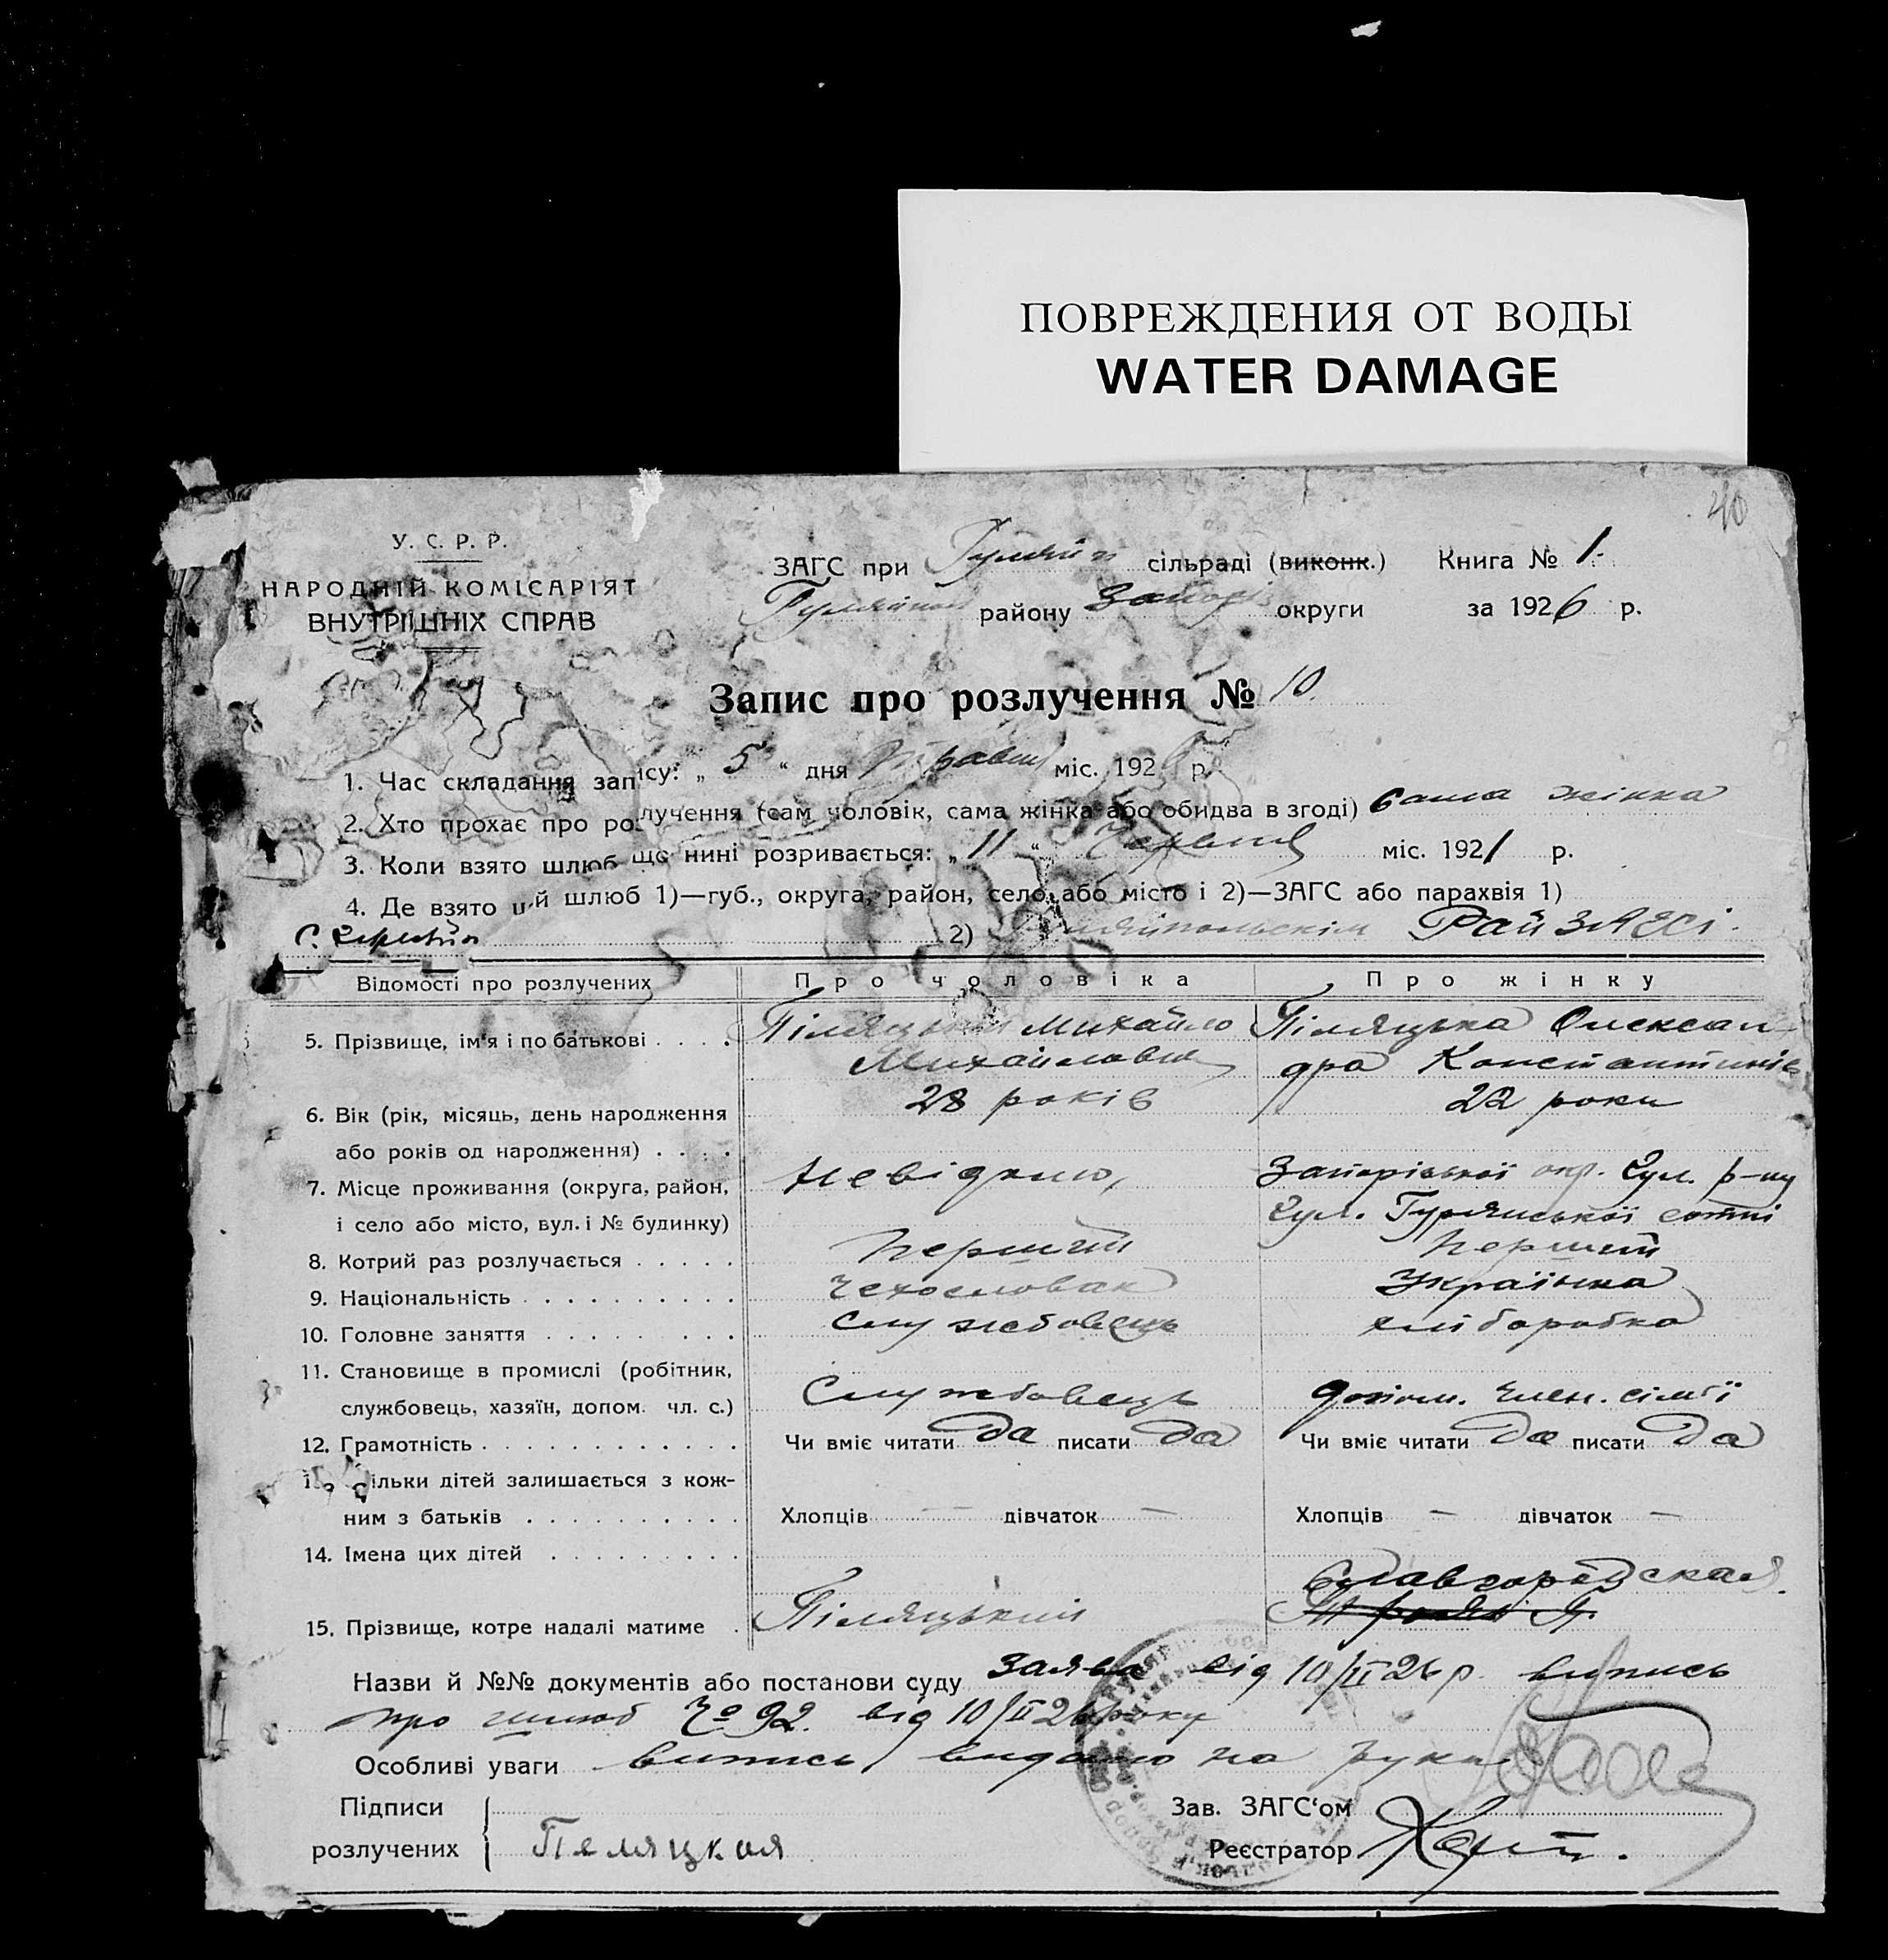 ПОВРЕЖДЕНИЯ ОТ ВОДЫ
WATER DAMAGE
40
У. С. Р. Р.
НАРОДНІЙ КОМІСАРІЯТ
ВНУТРІШНІХ СПРАВ
ЗАГС при Гуляйп сільраді (виконк.) Книга № 1.
Гуляйпол району Запоріз округи за 1926 р.
Запис про розлучення № 10.
1. Час складання запису: „ 5 “ дня травня міс. 1926 р.
2. Хто прохає про розлучення (сам чоловік, сама жінка або обидва в згоді) сама жінка
3. Коли взято шлюб що нині розривається: „ 11 “ Червня міс. 1921 р.
4. Де взято цей шлюб 1)—губ., округа, район, село або місто і 2)—ЗАГС або парахвія 1)
с. 2) Гуляйпольскім Рай ЗАГСі.
Відомості про розлучених Про чоловіка Про жінку
5. Прізвище, ім'я і по батькові . . . . Піляцький Михайло Піляцька Олексан-
Михайлович дра Константинів
6. Вік (рік, місяць, день народження 28 років 22 роки
або років од народження) . . . .
7. Місце проживання (округа, район, Невідомо, Запорізької окр. Гул. р-ну
і село або місто, вул. і № будинку) Гул. сотні
8. Котрий раз розлучається . . . . . перший перший
9. Національність . . . . . . . . . . Чехословак Українка
10. Головне заняття . . . . . . . . . Службовець хліборобка
11. Становище в промислі (робітник,
службовець, хазяїн, допом. чл. с.) Службовець допом. член. сімьї
12. Грамотність . . . . . . . . . . . . Чи вміє читати Да писати Да Чи вміє читати Да писати Да
13. Скільки дітей залишається з кож-
ним з батьків . . . . . . . . . . Хлопців — дівчаток — Хлопців — дівчаток —
14. Імена цих дітей . . . . . . . . .
Славгородская.
15. Прізвище, котре надалі матиме . Піляцький
Назви й №№ документів або постанови суду Заява від 10/II 26 р. випись
про шлюб № 92. від 10/II 26 року
Особливі уваги випись видано на руки
Підписи
розлучених Пеляцкая
Зав. ЗАГС'ом
Реєстратор